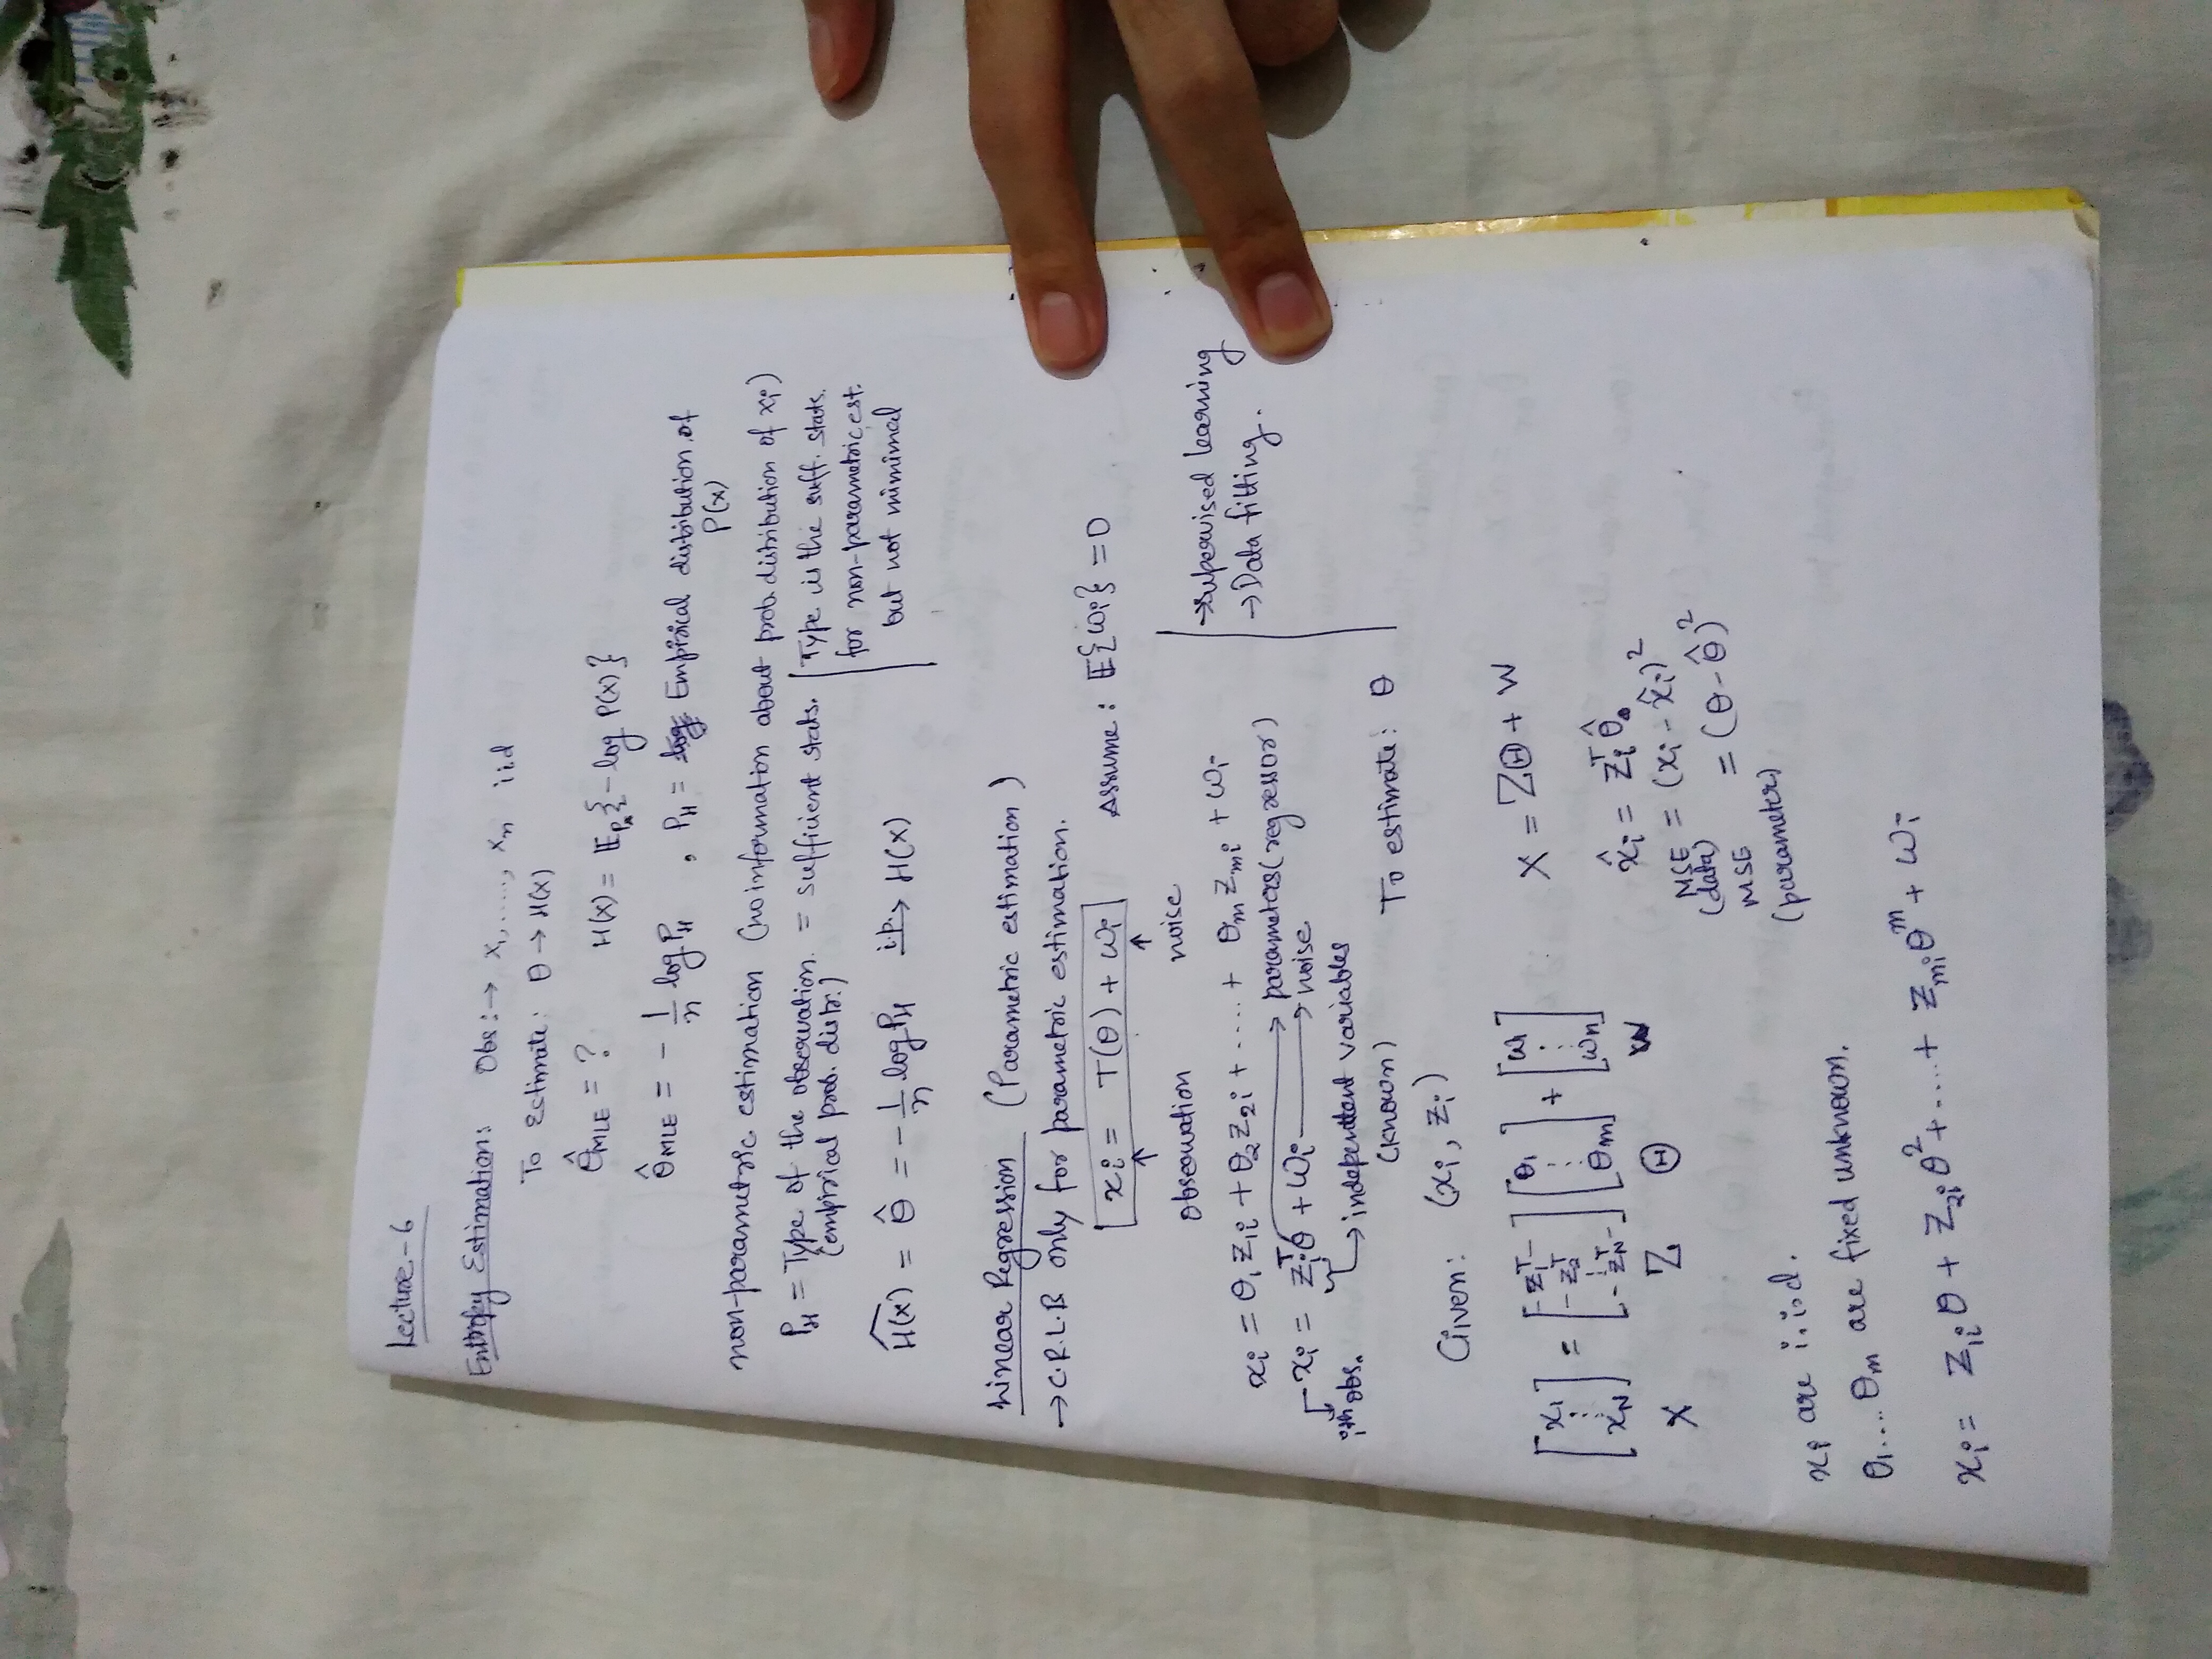 Lecture - 6
Entropy Estimation: Obs :→ x₁, ....., xₙ iid
To Estimate: θ → H(X)
θ̂MLE = ? H(X) = 𝔼Pₓ{- log P(X)}
θ̂MLE = - 1/n log P_H , P_H = Empirical distribution of P(x)
non-parametric estimation (no information about prob. distribution of xᵢ)
P_H = Type of the observation = sufficient stats.
(empirical prob. distr.)
Type is the suff. stats.
for non-parametric est.
but not mimimal
Ĥ(X) = θ̂ = - 1/n log P_H i.p.→ H(X)
Linear Regression (Parametric estimation)
→ C.R.L.B only for parametric estimation.
xᵢ = T(θ) + ωᵢ Assume : 𝔼{ωᵢ} = 0
↑ ↑
observation noise
xᵢ = θ₁Z₁ᵢ + θ₂Z₂ᵢ + ..... + θₘZₘᵢ + ωᵢ
→ parameters (regressor)
xᵢ = Zᵢᵀθ + ωᵢ → noise
iᵗʰ obs. → independent variables
(known)
→ supervised learning
→ Data fitting.
To estimate: θ
Given: (xᵢ, Zᵢ)
[x₁ ⋮ x_N] = [-Z₁ᵀ- -Z₂ᵀ ⋮ -Z_Nᵀ-] [θ₁ ⋮ θₘ] + [ω₁ ⋮ ωₙ]
X Z Θ W
X = ZΘ + W
x̂ᵢ = Zᵢᵀθ̂
MSE = (xᵢ - x̂ᵢ)²
(data)
MSE = (θ - θ̂)²
(parameter)
xᵢ are i.i.d.
θ₁.... θₘ are fixed unknown.
xᵢ = Z₁ᵢθ + Z₂ᵢθ² + .... + Zₘᵢθᵐ + ωᵢ